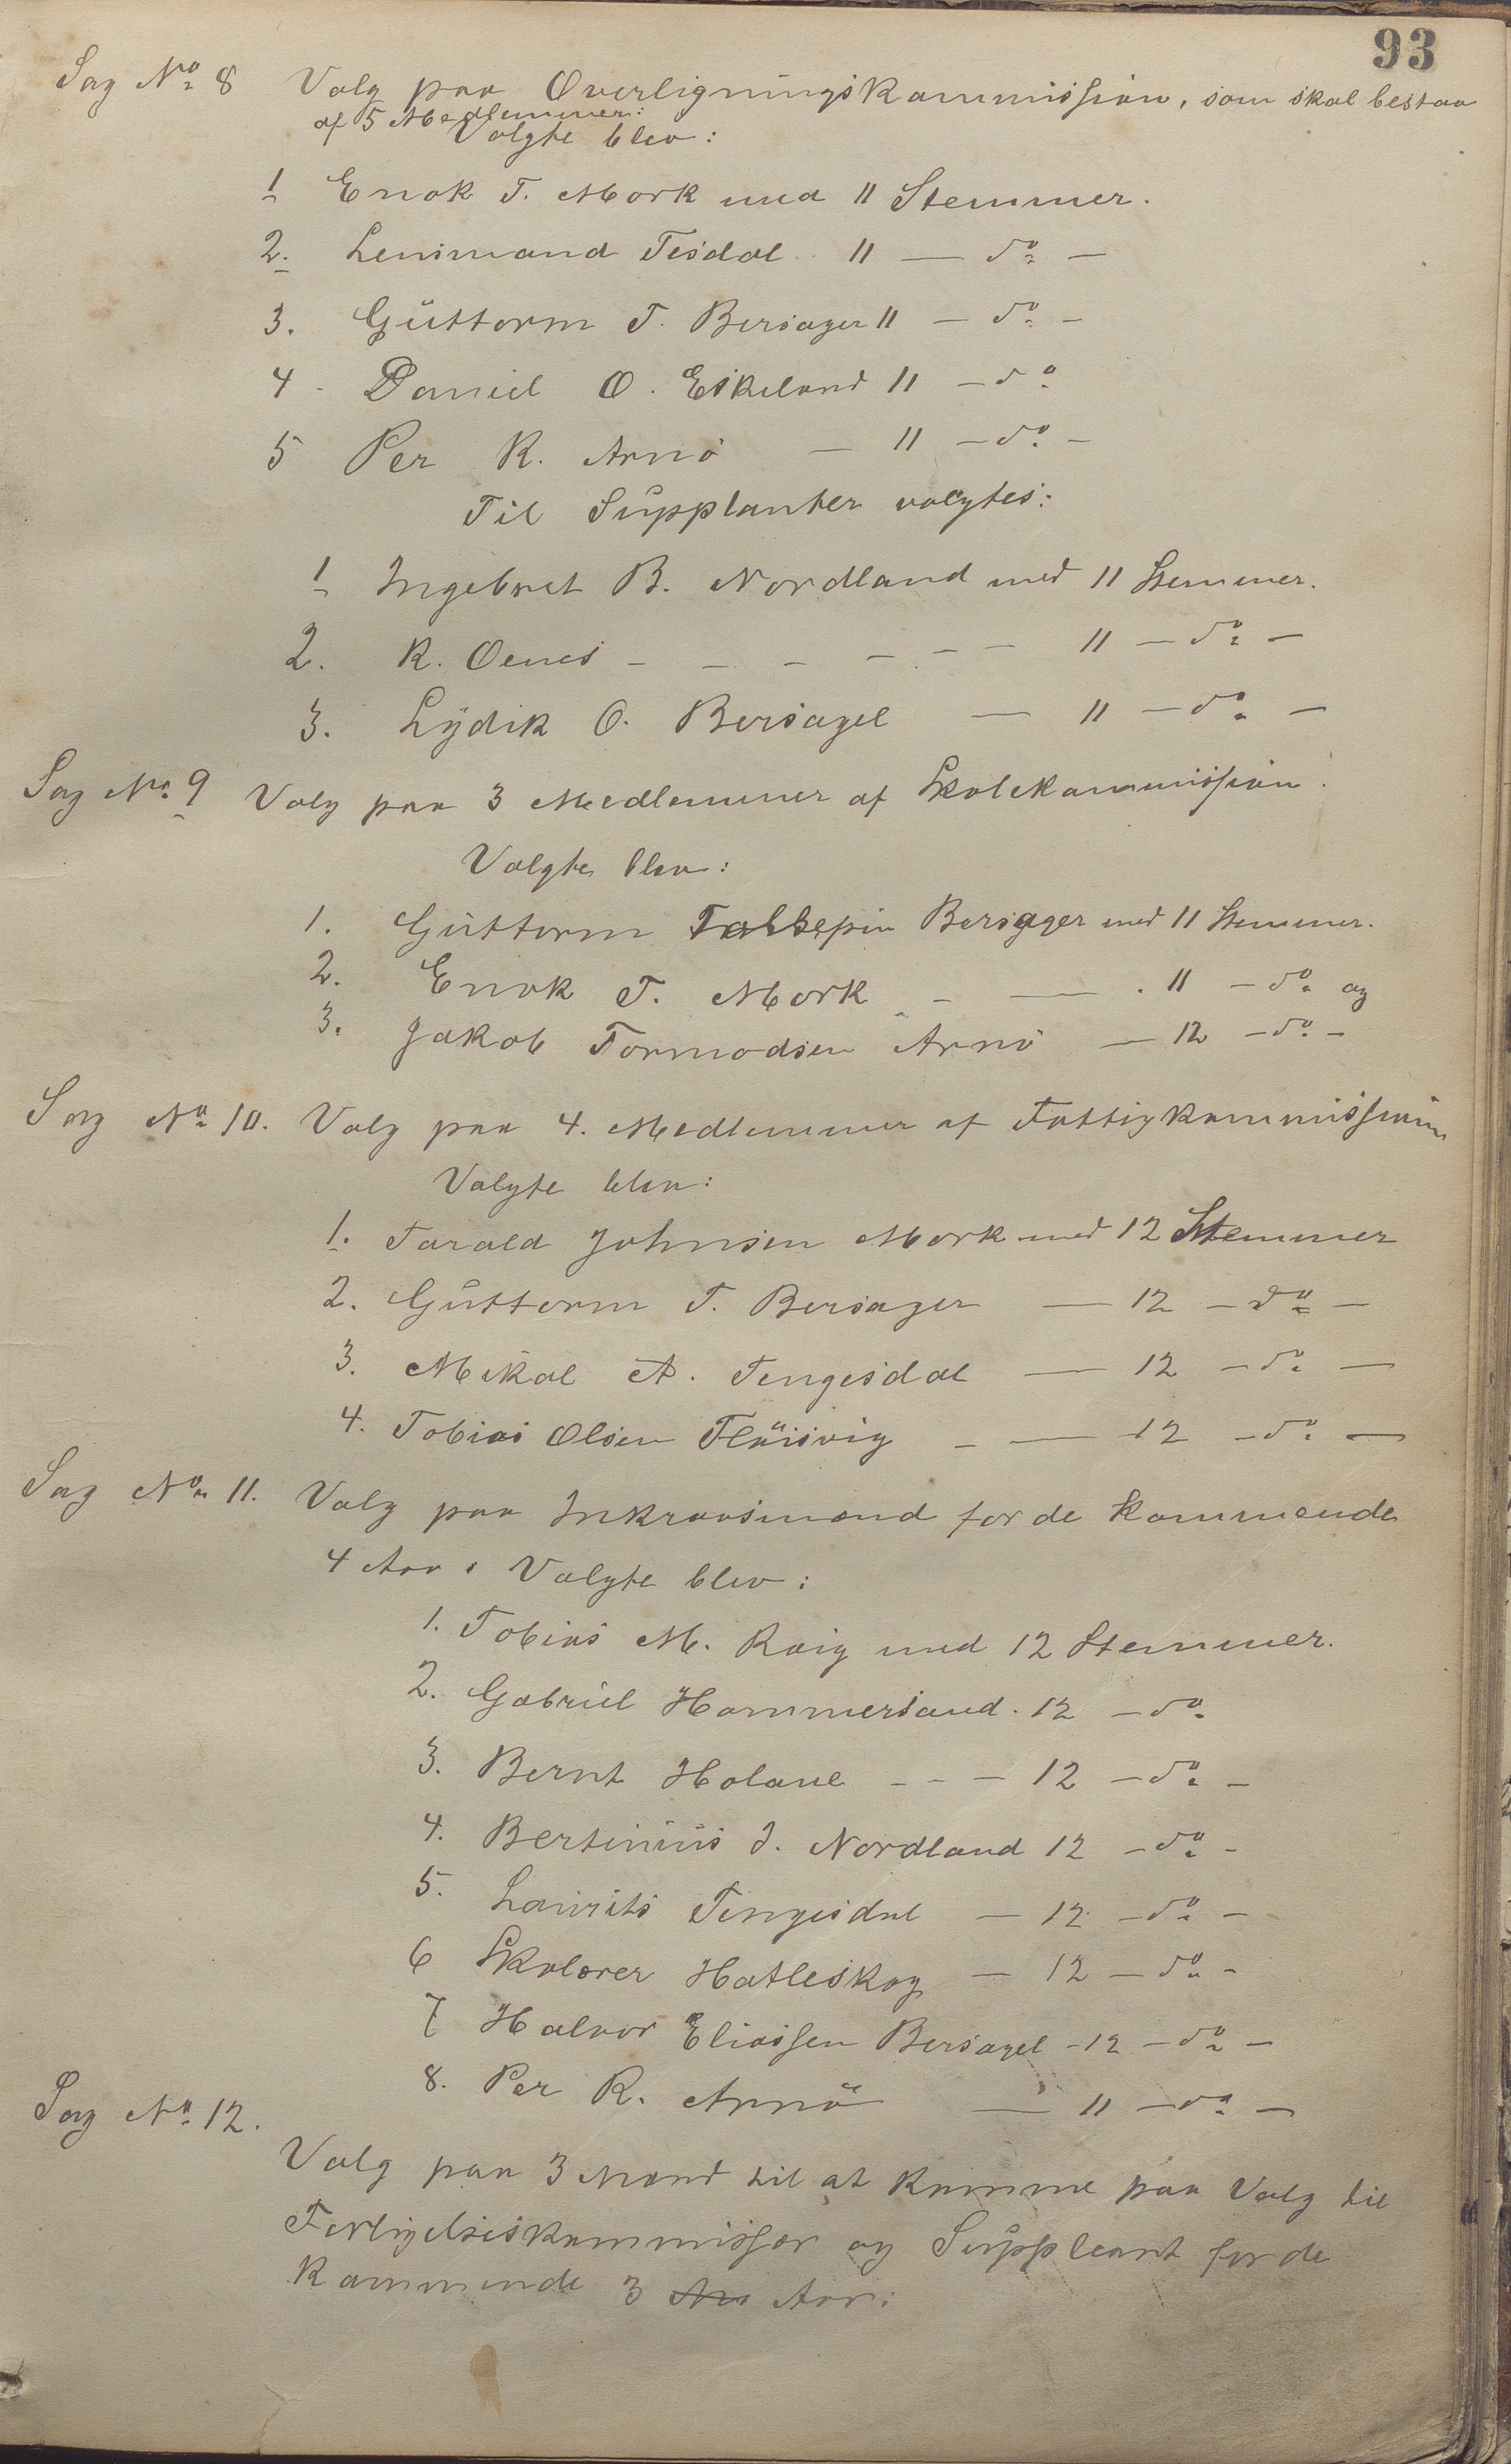 93
Sag No 8 Valg paa Overligningskommission, som skal bestaa
af 5 Medlemmer:
Valgte blev:
1 Enok T. Mork med 11 Stemmer.
2. Lensmand Tesdal 11 — do —
3. Guttorm T. Bersager 11 — do —
4 - Daniel O. Eskeland 11 — do
5 Per R. Arnö — 11 — do —
Til Supplanter valgtes:
1 Ingebret B. Nordland med 11 Stemmer.
2. R. Oenes - - - - - - 11 — do —
3. Lydik O. Bersagel — 11 — do —
Sag No 9 Valg paa 3 Medlemmer af Skolekommission.
Valgte blev:
1. Guttorm Bersager med 11 Stemmer.
2. Enok T. Mork - — . 11 — do og
3. Jakob Tormodsen Arnö — 12 — do —
Sag No 10. Valg paa 4. Medlemmer af Fattigkommission
Valgte blev:
1. Tarald Johnsen Mork med 12 Stemmer
2. Guttorm T. Bersager — 12 — do —
3. Mikal A. Tengesdal — 12 — do —
4. Tobias Olsen - — 12 — do —
Sag No 11. Valg paa Inkravsmænd for de kommende
4 Aar. Valgte blev:
1. Tobias M. med 12 Stemmer.
2. Gabriel Hammersand. 12 — do
3. Bernt - - - 12 — do —
4. Bertinius J. Nordland 12 — do -
5. Laurits Tengesdal — 12 — do —
6 Skolærer Hatleskog — 12 — do -
7 Halvor Eliassen Bersagel - 12 — do —
8. Per R. Arnö — 11 — do —
Sag No 12.
Valg paa 3 Mænd til at komme paa Valg til
Forligelseskommissær og Suppleant for de
kommende 3 Aar: